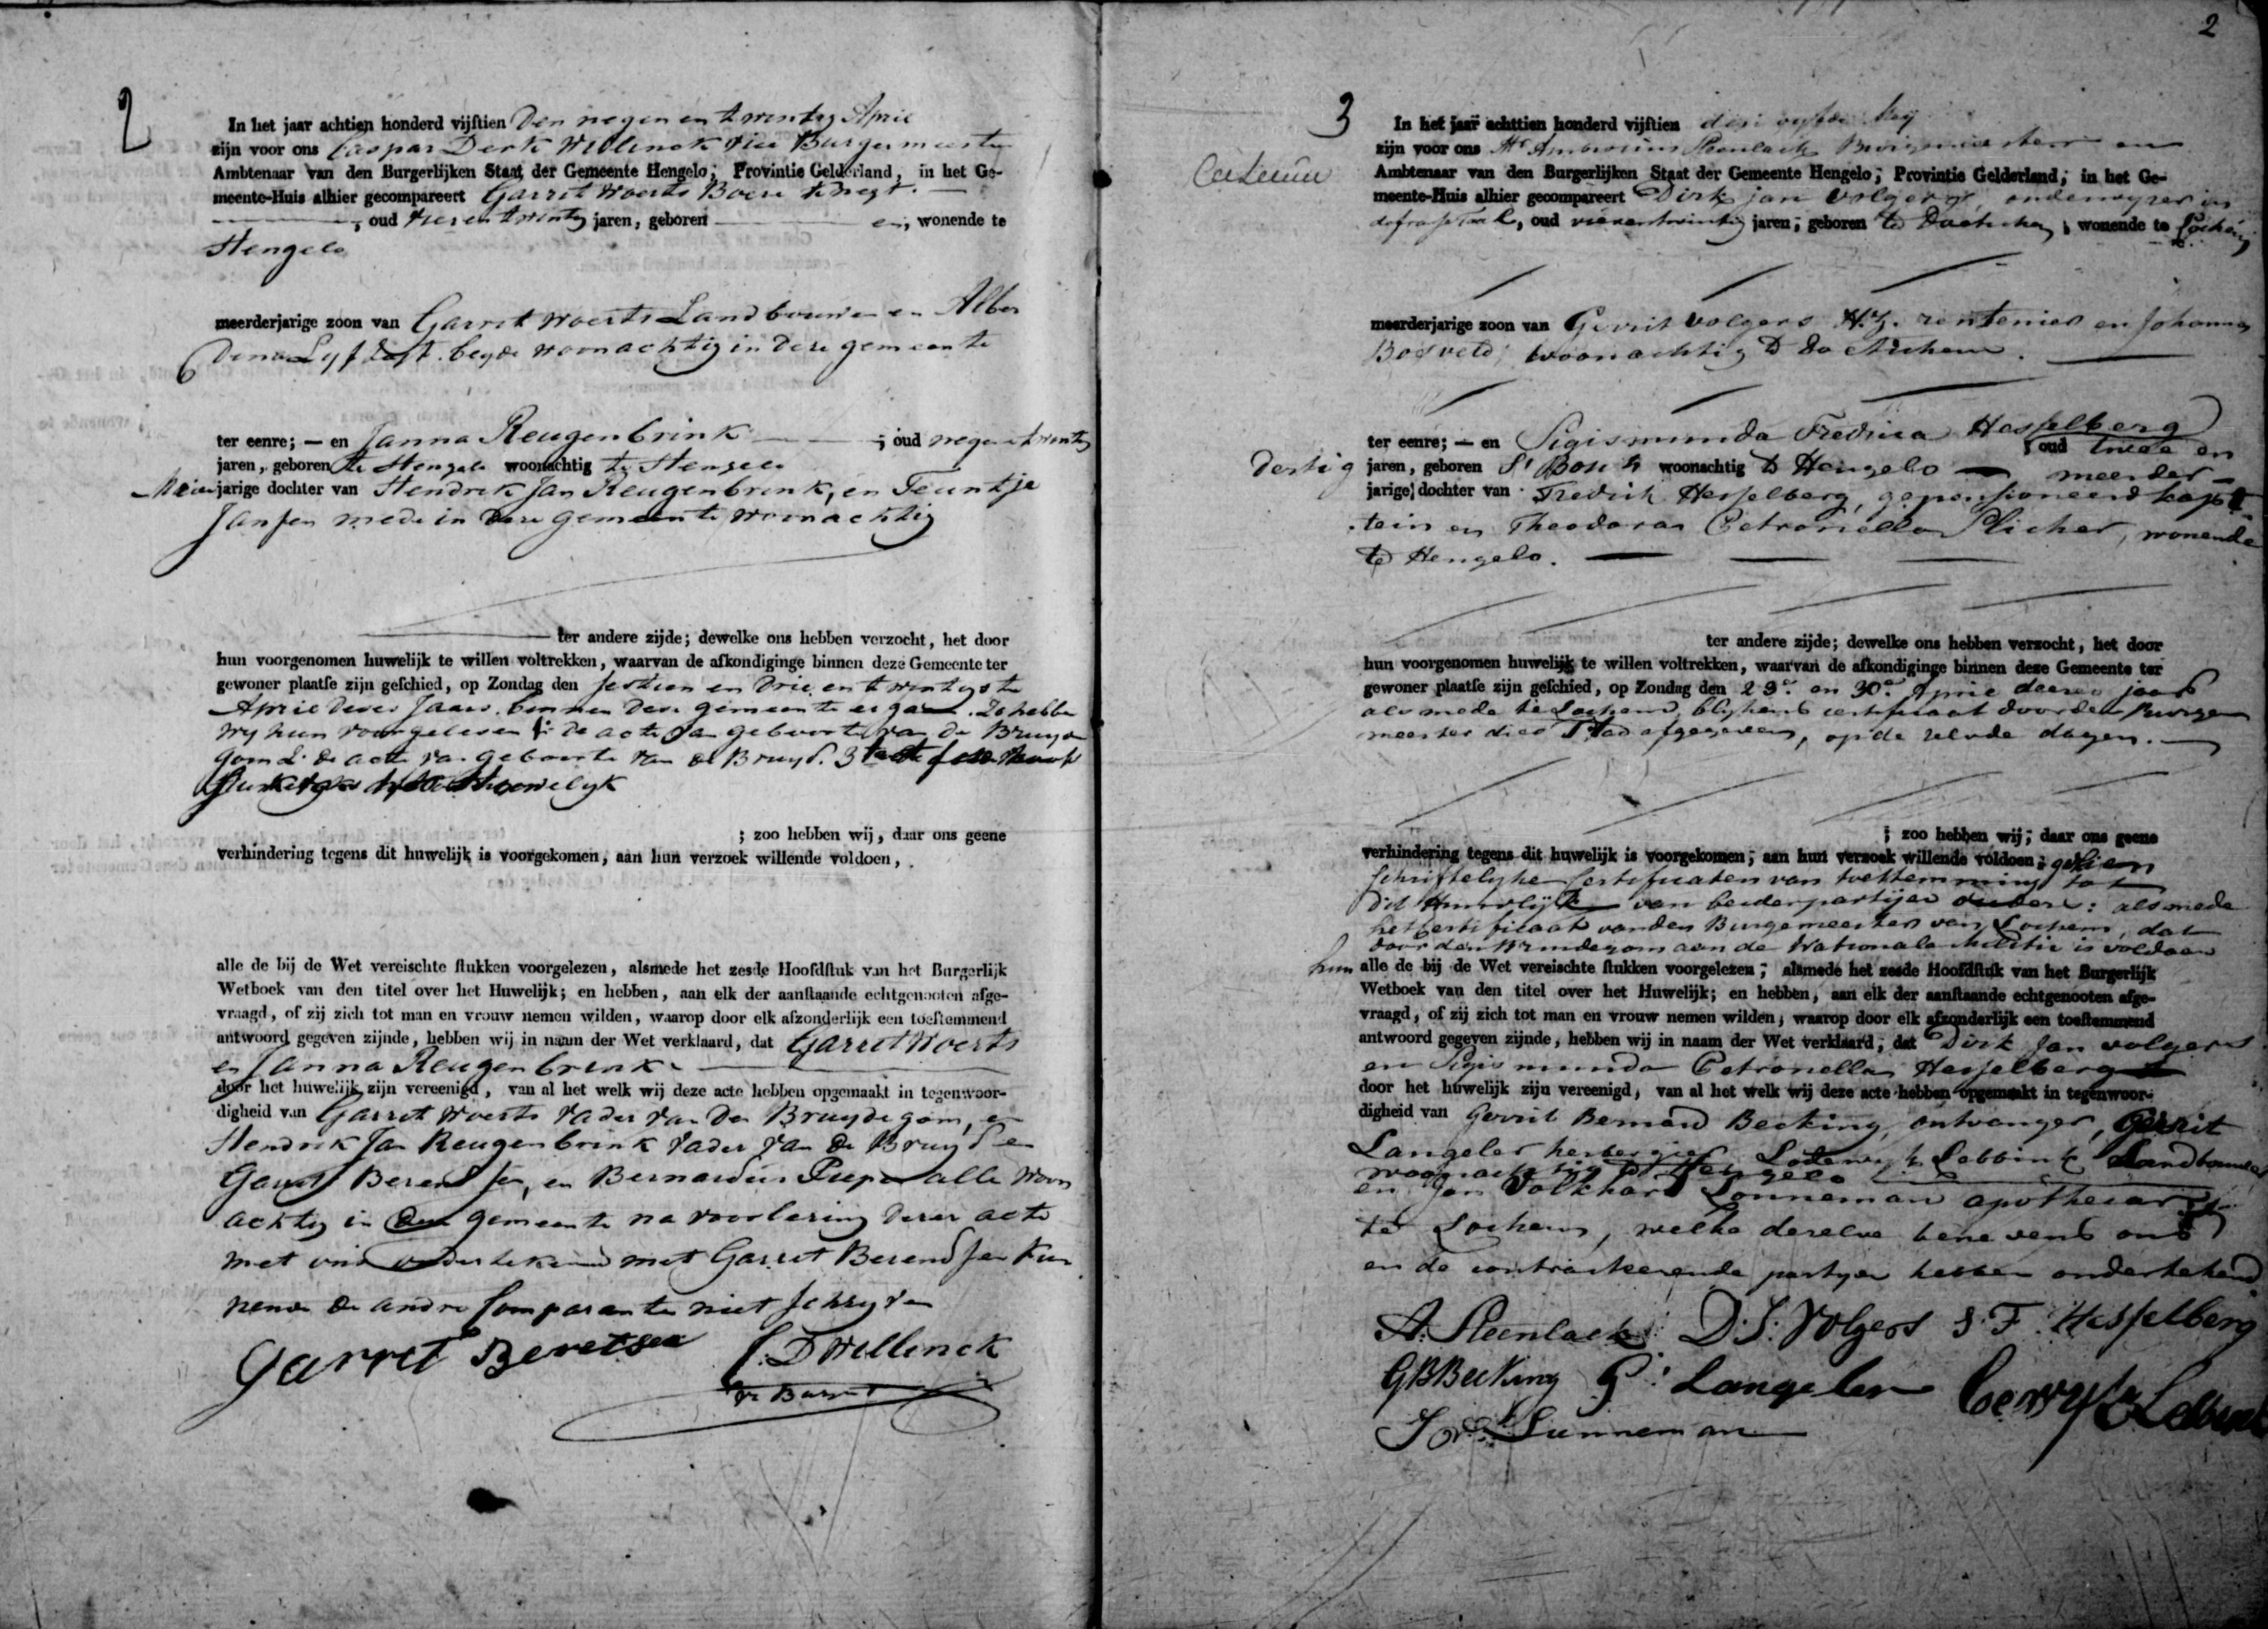 2
In het jaar achtien honderd vijftien Den negen en twentig April
zijn voor ons Caspar Derk Willinck vice Burgermeester
Ambtenaar van den Burgerlijken Staat der Gemeente Hengelo; Provintie Gelderland, in het Ge-
meente-Huis alhier gecompareert Garrit Woerts Boere knegt
, oud vier en twentig jaren, geboren en, wonende te
Hengelo
meerderjarige zoon van Garrit Woerts Landbouwer en Alber
dina beyde woonachtig in dese gemeente
ter eenre; — en Janna Reugenbrink ; oud negen twentig
jaren, geboren te Hengelo woonachtig te Hengelo
jarige dochter van Hendrik Jan Reugenbrink, en Teuntje
Jansen mede in dese gemeente woonachtig
ter andere zijde; dewelke ons hebben verzocht, het door
hun voorgenomen huwelijk te willen voltrekken, waarvan de afkondiginge binnen deze Gemeente ter
gewoner plaatse zijn geschied, op Zondag den sestien en drie en twentigste
April deses Jaars binnen dese gemeente Zo hebbe
wy hun voorgelesen 1: de acte van geboorte van de Bruyde
gom 2: de acte van geboorte van de Bruyd. 3
; zoo hebben wij, daar ons geene
verhindering tegens dit huwelijk is voorgekomen, aan hun verzoek willende voldoen,
alle de bij de Wet vereischte stukken voorgelezen, alsmede het zesde Hoofdstuk van het Burgerlijk
Wetboek van den titel over het Huwelijk; en hebben, aan elk der aanstaande echtgenooten afge-
vraagd, of zij zich tot man en vrouw nemen wilden, waarop door elk afzonderlijk een toestemmend
antwoord gegeven zijnde, hebben wij in naam der Wet verklaard, dat Garrit Woerts
en Janna Reugenbrink
door het huwelijk zijn vereenigd, van al het welk wij deze acte hebben opgemaakt in tegenwoor-
digheid van Garrit Woerts vader van den Bruydegom, en
Hendrik Jan Reugenbrink vader van de Bruyd en
Garrit Berendsen, en Bernardus alle woon
achtig in dese gemeente na voorlesing deser acte
met ons ondertekend met Garrit Berendsen kun
nende de andre Comparanten niet schryven
Garret Beretsen C. D Willinck
vc Burgm
2
3
In het jaar achttien honderd vijftien den vyfde Mey
zijn voor ons Hr Ambrosius Steenlack Burgemeester en
Ambtenaar van den Burgerlijken Staat der Gemeente Hengelo; Provintie Gelderland; in het Ge-
meente-Huis alhier gecompareert Dirk jan Volgers, onderwyzer in
de franse Taal, oud vierentwintig jaren; geboren te Doetichem; wonende te Lochem
meerderjarige zoon van Gerrit Volgers H.z. rentenier en Johanna
Bosveld, woonachtig te Doetichem.
ter eenre; — en Sigismunda Fredrica Hesselberg ; oud twee en
dertig jaren, geboren S' Bosch woonachtig te Hengelo meerder-
jarige dochter van Fredrik Hesselberg, gepensioneerd kapi-
tein en Theodora Petronella Plicher, wonende
te Hengelo.
ter andere zijde; dewelke ons hebben verzocht, het door
hun voorgenomen huwelijk te willen voltrekken, waarvan de afkondiginge binnen deze Gemeente ter
gewoner plaatse zijn geschied, op Zondag den 23e en 30e April deezes jaars
als mede te Lochem, blykens certificaat door den Burge
meester dier Stad afgegeven, op de zelvde dagen.
; zoo hebben wij; daar ons geene
verhindering tegens dit huwelijk is voorgekomen; aan hun verzoek willende voldoen; gezien
schriftelyke certificaten van toestemming tot
dit Huwelijk van beider partijen ouders: alsmede
het certificaat van den Burgemeester van Lochem, dat
door den Bruidegom aan de Nationale Militie is voldaan
hun alle de bij de Wet vereischte stukken voorgelezen; alsmede het zesde Hoofdstuk van het Burgerlijk
Wetboek van den titel over het Huwelijk; en hebben, aan elk der aanstaande echtgenooten afge-
vraagd, of zij zich tot man en vrouw nemen wilden; waarop door elk afzonderlijk een toestemmend
antwoord gegeven zijnde, hebben wij in naam der Wet verklaard; dat Dirk Jan Volgers
en Sigismunda Petronella Hesselberg
door het huwelijk zijn vereenigd, van al het welk wij deze acte hebben opgemaakt in tegenwoor-
digheid van Gerrit Bernard Becking, ontvanger, Gerrit
Langeler herbergier Lodewyk Lebbink Landbouwer
woonachtig te Hengelo
en Jan Volkhard Lonneman apothecar
te Lochem, welke dezelve benevens ons
en de contracteerende partyen hebben onderteekend
A. Steenlack D. J. Volgers S. F. Hesselberg
GBBecking G. Langeler Lodewyk Lebbink
J V Lunneman